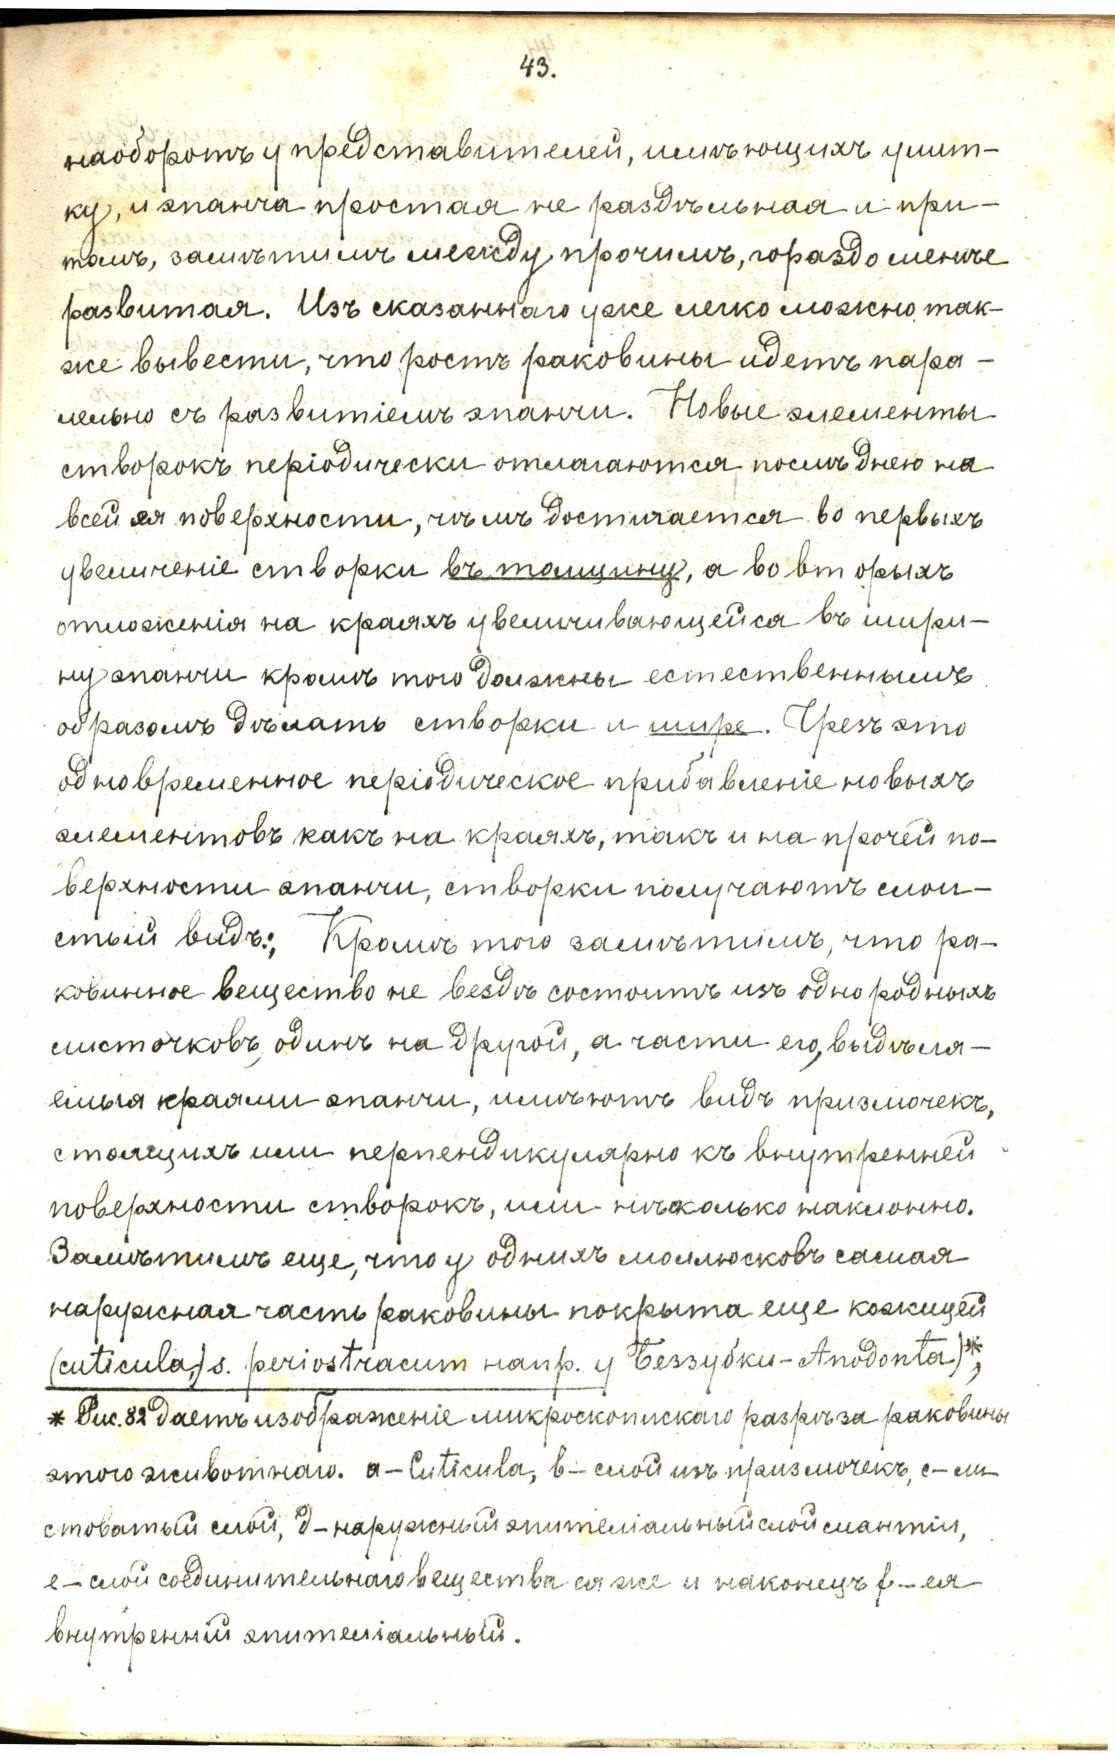 43.
наоборотъ у представителей, имѣющихъ улит-
ку, и эпанча простая не раздѣльная и при-
томъ, замѣтимъ между прочимъ, гораздо менѣе
развитая. Изъ сказаннаго уже легко можно так-
же вывести, что ростъ раковины идетъ пара-
лельно съ развитіемъ эпанчи. Новые элементы
створокъ періодически отлагаются послѣднею на
всей ея поверхности, чѣмъ достигается во первыхъ
увеличеніе створки въ толщину, а во вторыхъ
отложенія на краяхъ увеличивающейся въ шири-
ну эпанчи кромѣ того должны естественнымъ
образомъ дѣлать створки и шире. Чрезъ это
одновременное періодическое прибавленіе новыхъ
элементовъ какъ на краяхъ, такъ и на прочей по-
верхности эпанчи, створки получаютъ слои-
стый видъ; Кромѣ того замѣтимъ, что ра-
ковинное вещество не вездѣ состоитъ изъ однородныхъ
листочковъ, одинъ на другой, а части его, выдѣля-
емыя краями эпанчи, имѣютъ видъ призмочекъ,
стоящихъ или перпендикулярно къ внутренней
поверхности створокъ, или нѣсколько наклонно.
Замѣтимъ еще, что у однихъ моллюсковъ самая
наружная часть раковины покрыта еще кожицей
(cuticula,) s. periostracum напр. у Беззубки-Anodonta)*,
* Рис. 82 даетъ изображеніе микроскопискаго разрѣза раковины
этого животнаго. a-Cuticula, b-слой изъ призмочекъ, c-ли-
стоватый слой, d-наружный эпителіальный слой мантіи,
e-слой соединительнаго вещества ея же и наконецъ f-ея
внутренній эпителіальный.